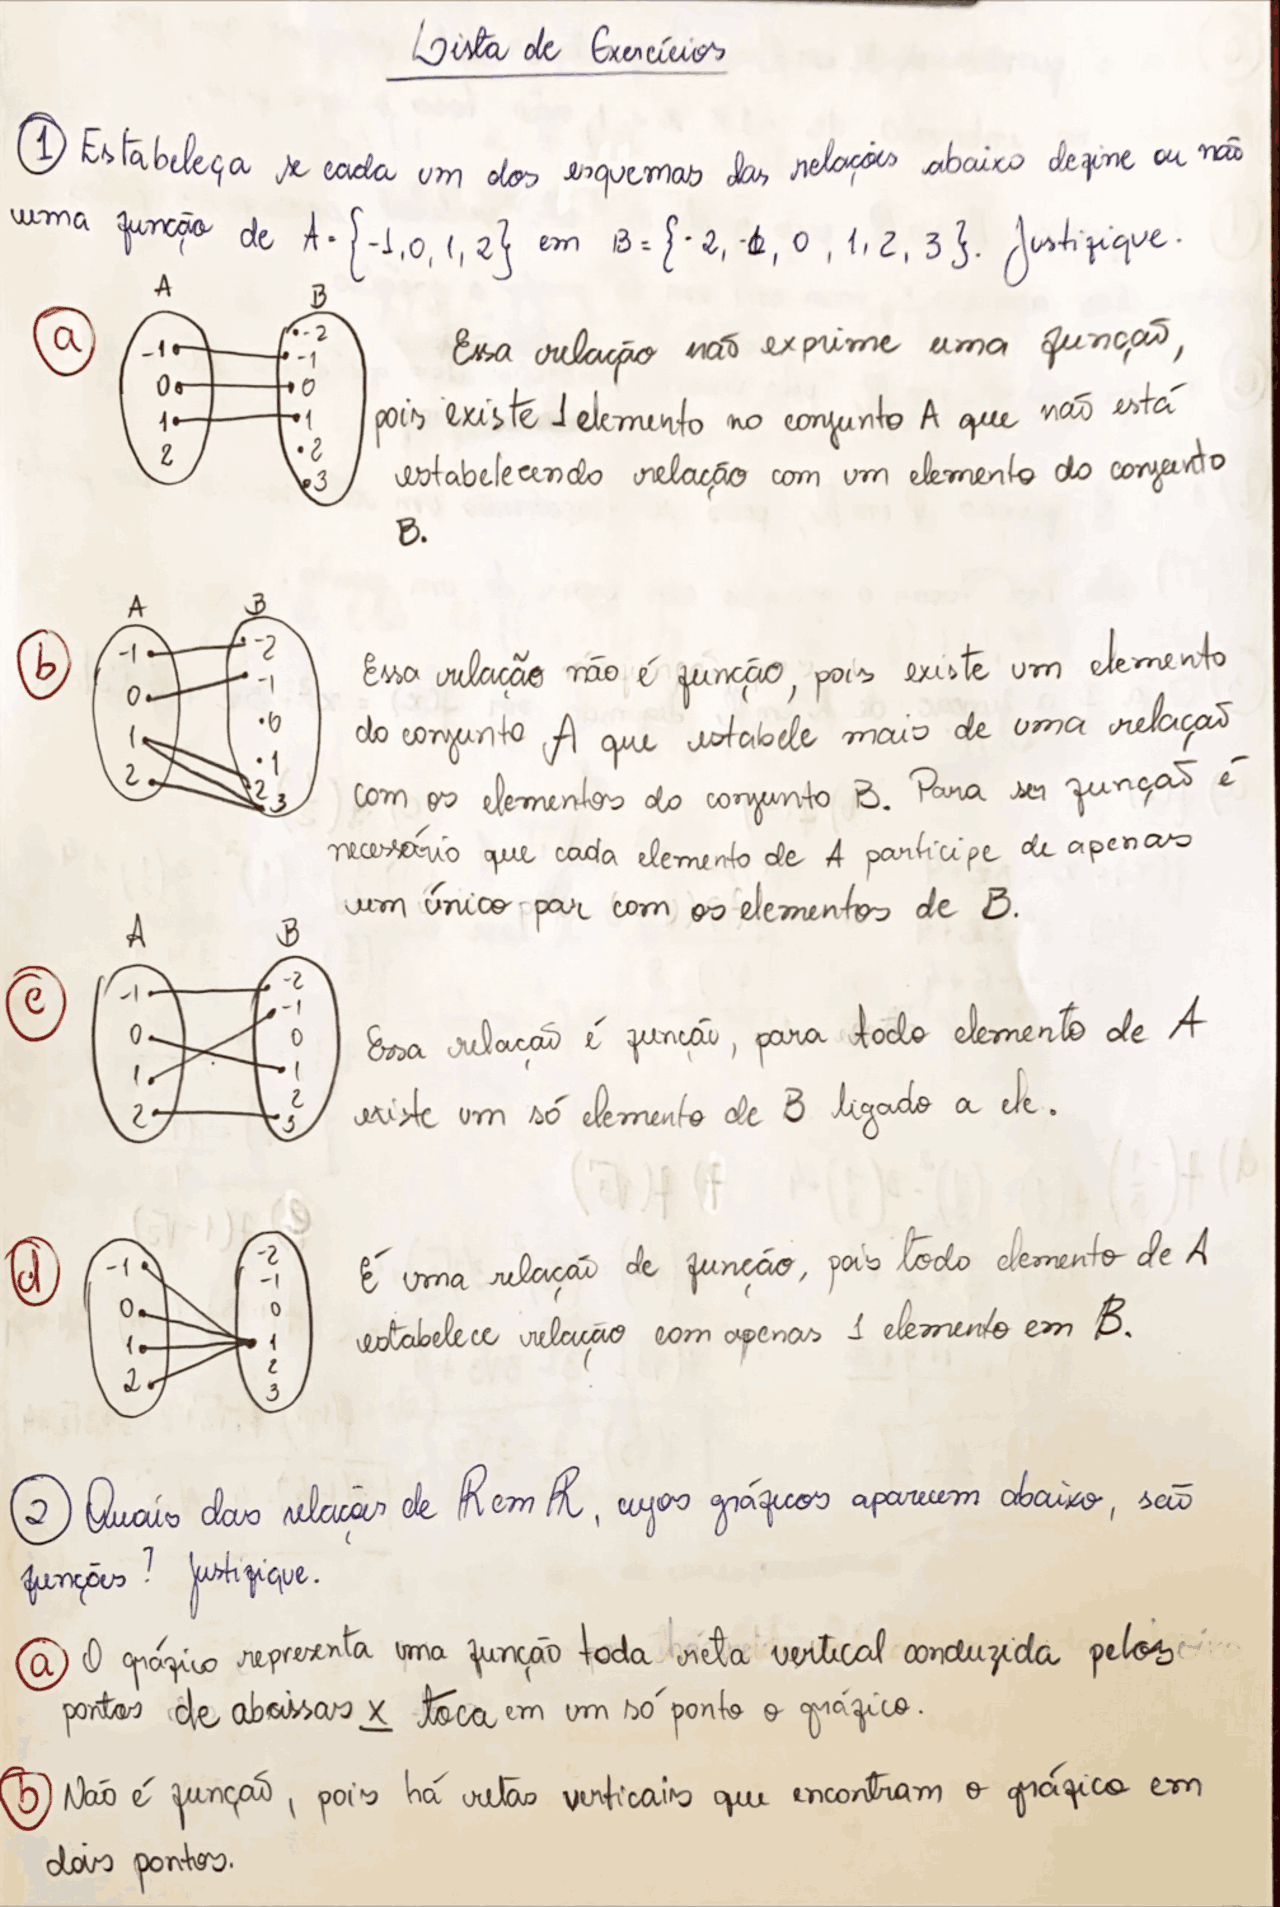 Lista de Exercícios
① Estabeleça se cada um dos esquemas das relações abaixo define ou não
uma função de A = {-1, 0, 1, 2} em B = {-2, -1, 0, 1, 2, 3}. Justifique.
A B
a
-1 0 1 2
-2 -1 0 1 2 3
Essa relação não exprime uma função,
pois existe 1 elemento no conjunto A que não está
estabelecendo relação com um elemento do conjunto
B.
A B
b
-1 0 1 2
-2 -1 0 1 2 3
Essa relação não é função, pois existe um elemento
do conjunto A que estabele mais de uma relação
com os elementos do conjunto B. Para ser função é
necessário que cada elemento de A participe de apenas
um único par com os elementos de B.
A B
c
-1 0 1 2
-2 -1 0 1 2 3
Essa relação é função, para todo elemento de A
existe um só elemento de B ligado a ele.
d
-1 0 1 2
-2 -1 0 1 2 3
É uma relação de função, pois todo elemento de A
estabelece relação com apenas 1 elemento em B.
② Quais das relações de R em R, cujos gráficos aparecem abaixo, são
funções? Justifique.
a O gráfico representa uma função toda reta vertical conduzida pelos
pontos de abcissas x toca em um só ponto o gráfico.
b Não é função, pois há retas verticais que encontram o gráfico em
dois pontos.